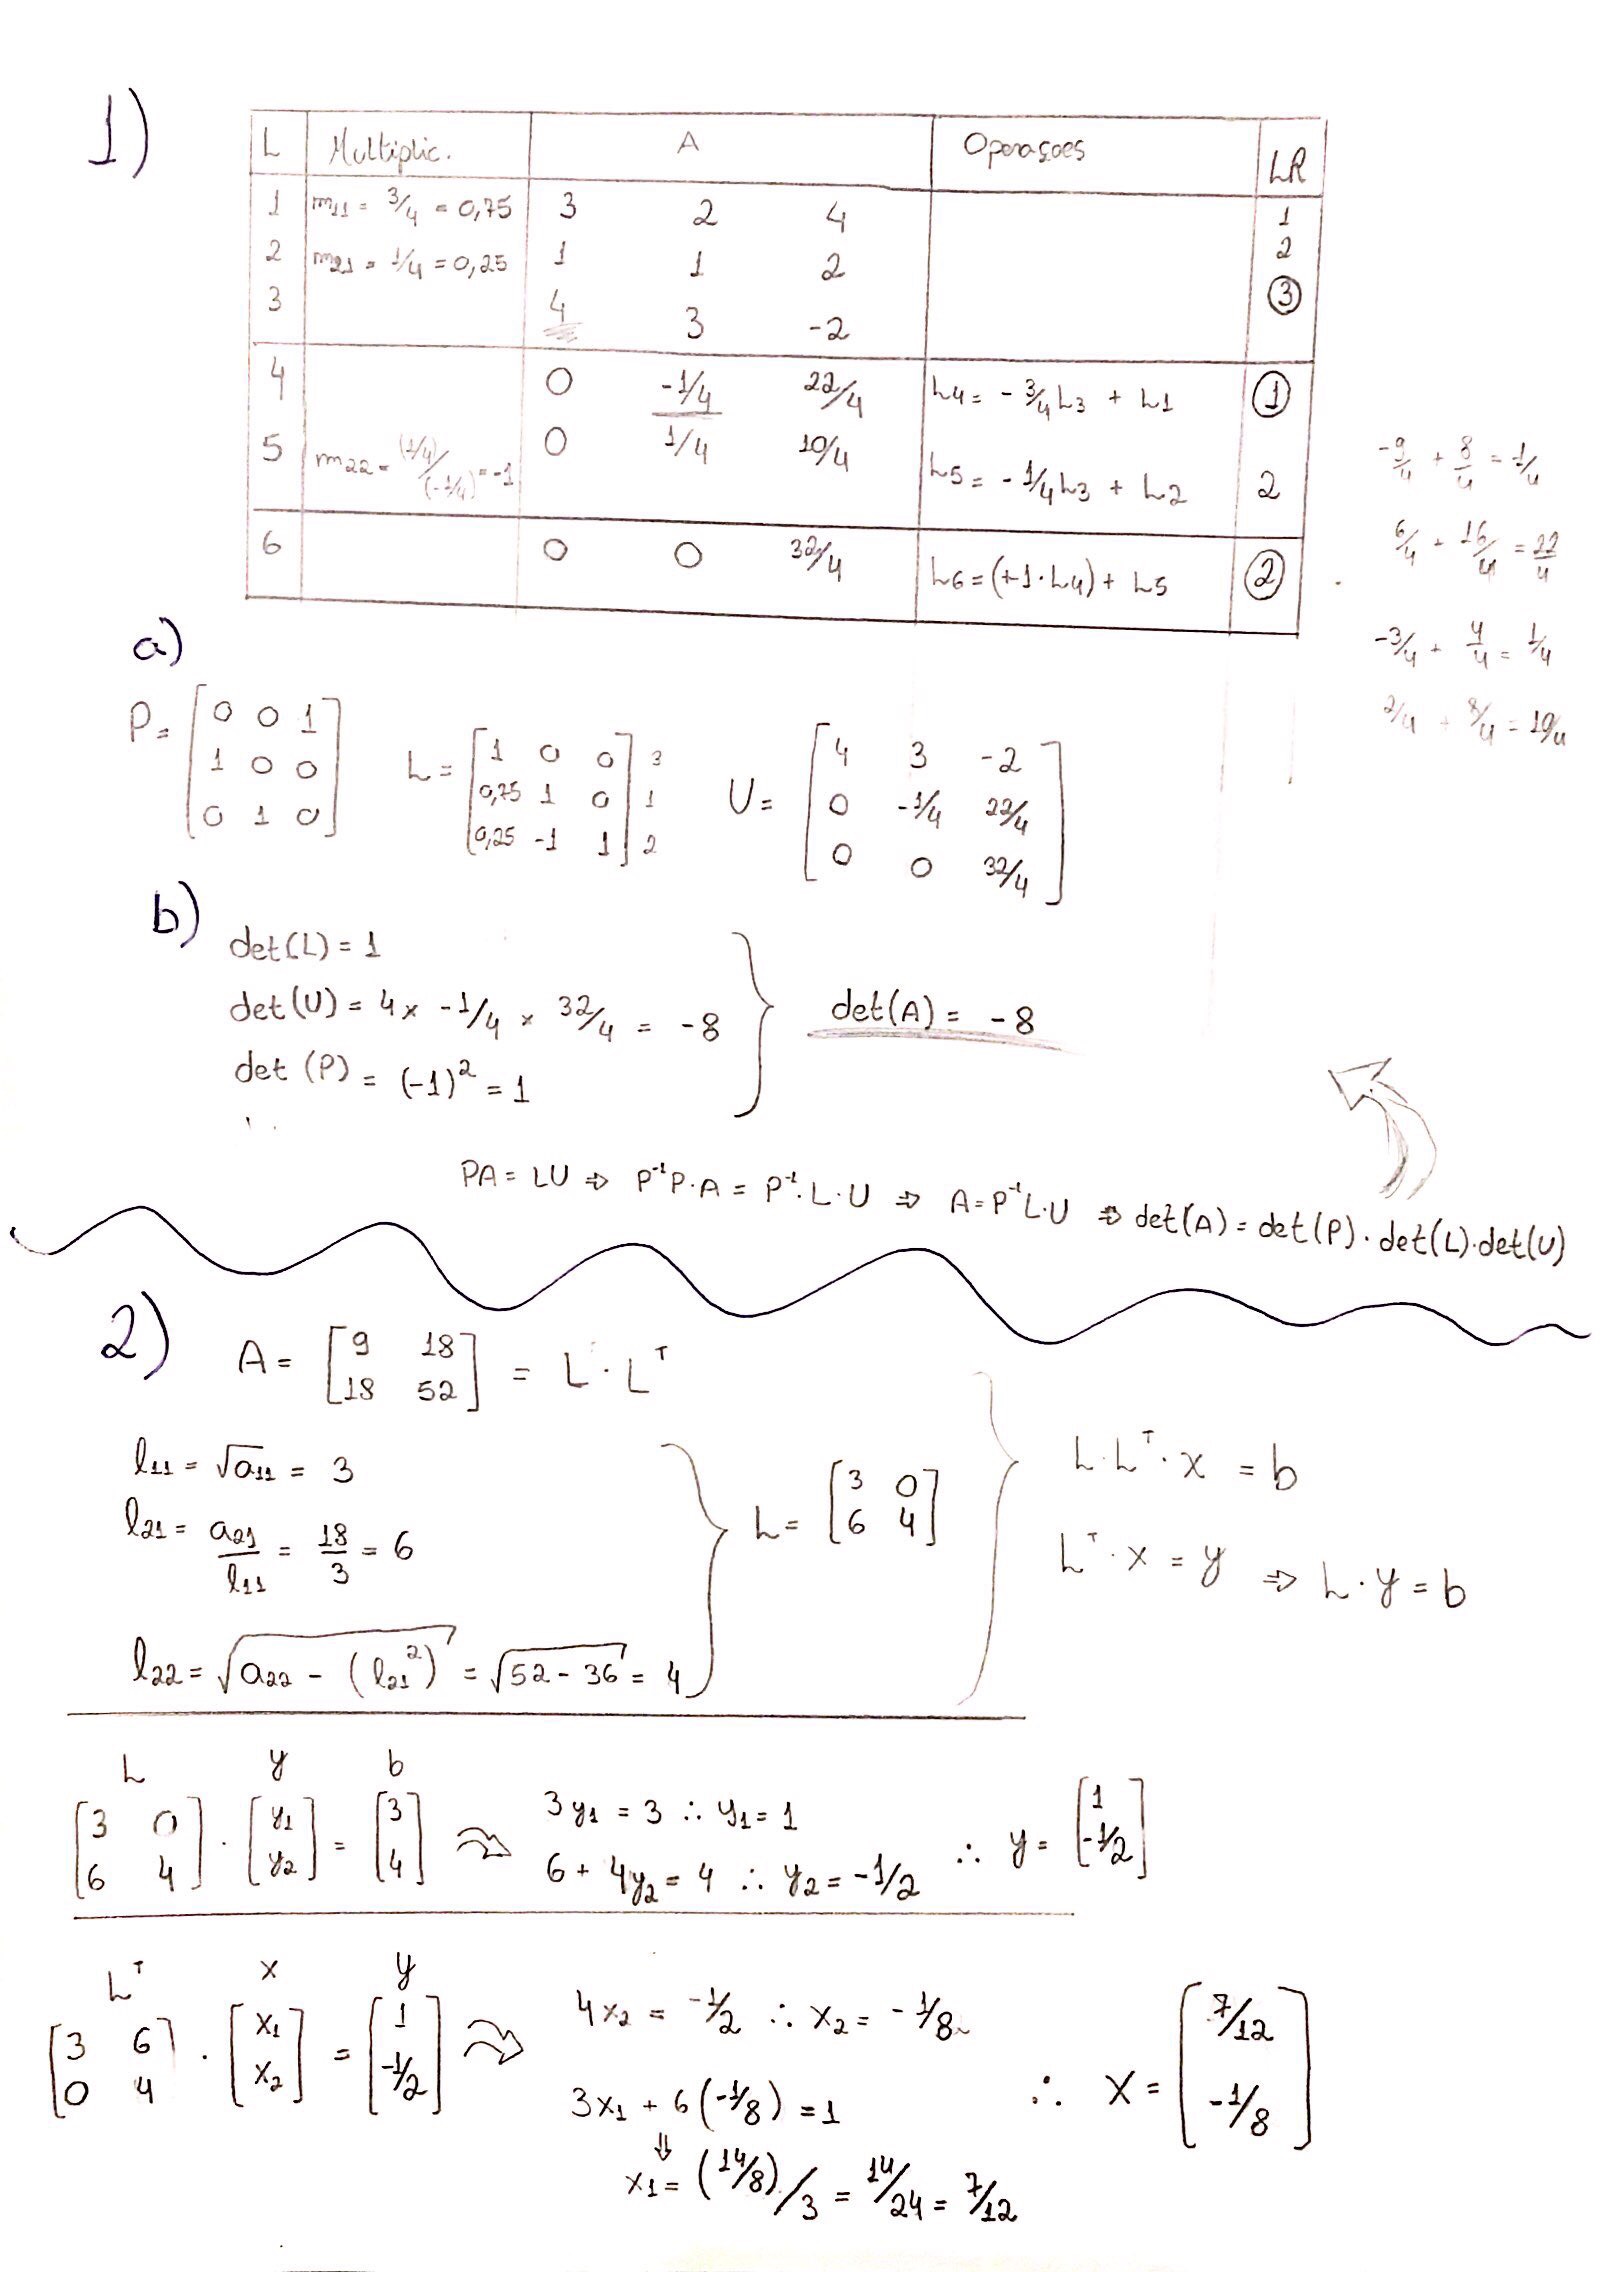 1)
L Multiplic. A Operações LR
1 m11 = 3/4 = 0,75 3 2 4 1
2 m21 = 1/4 = 0,25 1 1 2 2
3 4 3 -2 3
4 0 -1/4 22/4 L4 = - 3/4 L3 + L1 1
5 m22 = (1/4)/(-1/4) = -1 0 1/4 10/4 L5 = - 1/4 L3 + L2 2
6 0 0 32/4 L6 = (+1·L4) + L5 2
-9/4 + 8/4 = -1/4
6/4 + 16/4 = 22/4
-3/4 + 4/4 = 1/4
2/4 + 8/4 = 10/4
a)
P = [0 0 1
1 0 0
0 1 0]
L = [1 0 0] 3
0,75 1 0 1
0,25 -1 1 2
U = [4 3 -2
0 -1/4 22/4
0 0 32/4]
b)
det(L) = 1
det(U) = 4 x -1/4 x 32/4 = -8
det (P) = (-1)² = 1
det(A) = -8
PA = LU ⇒ P⁻¹P·A = P⁻¹·L·U ⇒ A = P⁻¹L·U ⇒ det(A) = det(P)·det(L)·det(U)
2)
A = [9 18
18 52] = L·Lᵀ
l11 = √a11 = 3
l21 = a21/l11 = 18/3 = 6
l22 = √(a22 - (l21²)) = √(52 - 36) = 4
L = [3 0
6 4]
L·Lᵀ·x = b
Lᵀ·x = y ⇒ L·y = b
L y b
[3 0
6 4] · [y1
y2] = [3
4]
3y1 = 3 ∴ y1 = 1
6 + 4y2 = 4 ∴ y2 = -1/2
∴ y = [1
-1/2]
Lᵀ x y
[3 6
0 4] · [x1
x2] = [1
-1/2]
4x2 = -1/2 ∴ x2 = -1/8
3x1 + 6(-1/8) = 1
⇓
x1 = (14/8)/3 = 14/24 = 7/12
∴ X = [7/12
-1/8]